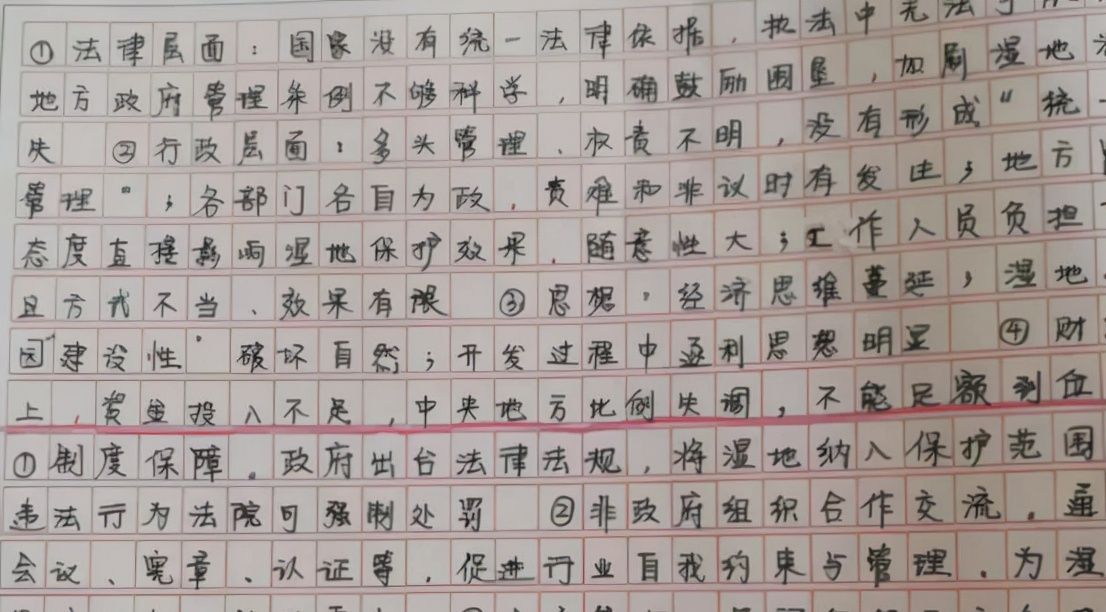 ①法律层面：国家没有统一法律依据，执法中无法
地方政府管理条例不够科学，明确鼓励围垦，加剧湿地
失 ②行政层面：多头管理、权责不明，没有形成“统一
管理”；各部门各自为政，责难和非议时有发生；地方
态度直接影响湿地保护效果，随意性大；工作人员负担
且方式不当、效果有限 ③思想，经济思维蔓延，湿地
园“建设性”破坏自然；开发过程中逐利思想明显 ④财
上，资金投入不足，中央地方比例失调，不能足额到位
①制度保障。政府出台法律法规，将湿地纳入保护范围
违法行为法院可强制处罚 ②非政府组织合作交流。通
会议、宪章、认证等，促进行业自我约束与管理，为湿